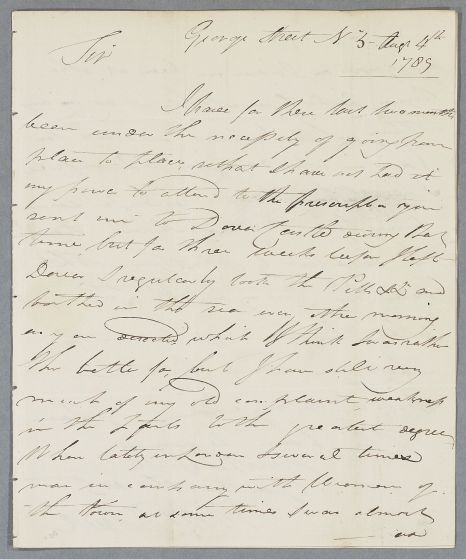 George Street No 5 Augt 4th
1789
Sir
I have for these last two months
been under the necessity of going from
place to place, so that I have not had it
in my power to attend to the prescription you
sent me to Dover Castle during that
time, but for three weeks before I left
Dover I regularly took the Pills &c and
bathed in the sea every other morning
as you directed which I think I was rather
the better for, but I have still very
much of my old complaint, weakness
in the Loins to the greatest degree
When lately in London I several times
was in company with Women of
the town, at some times I was almost